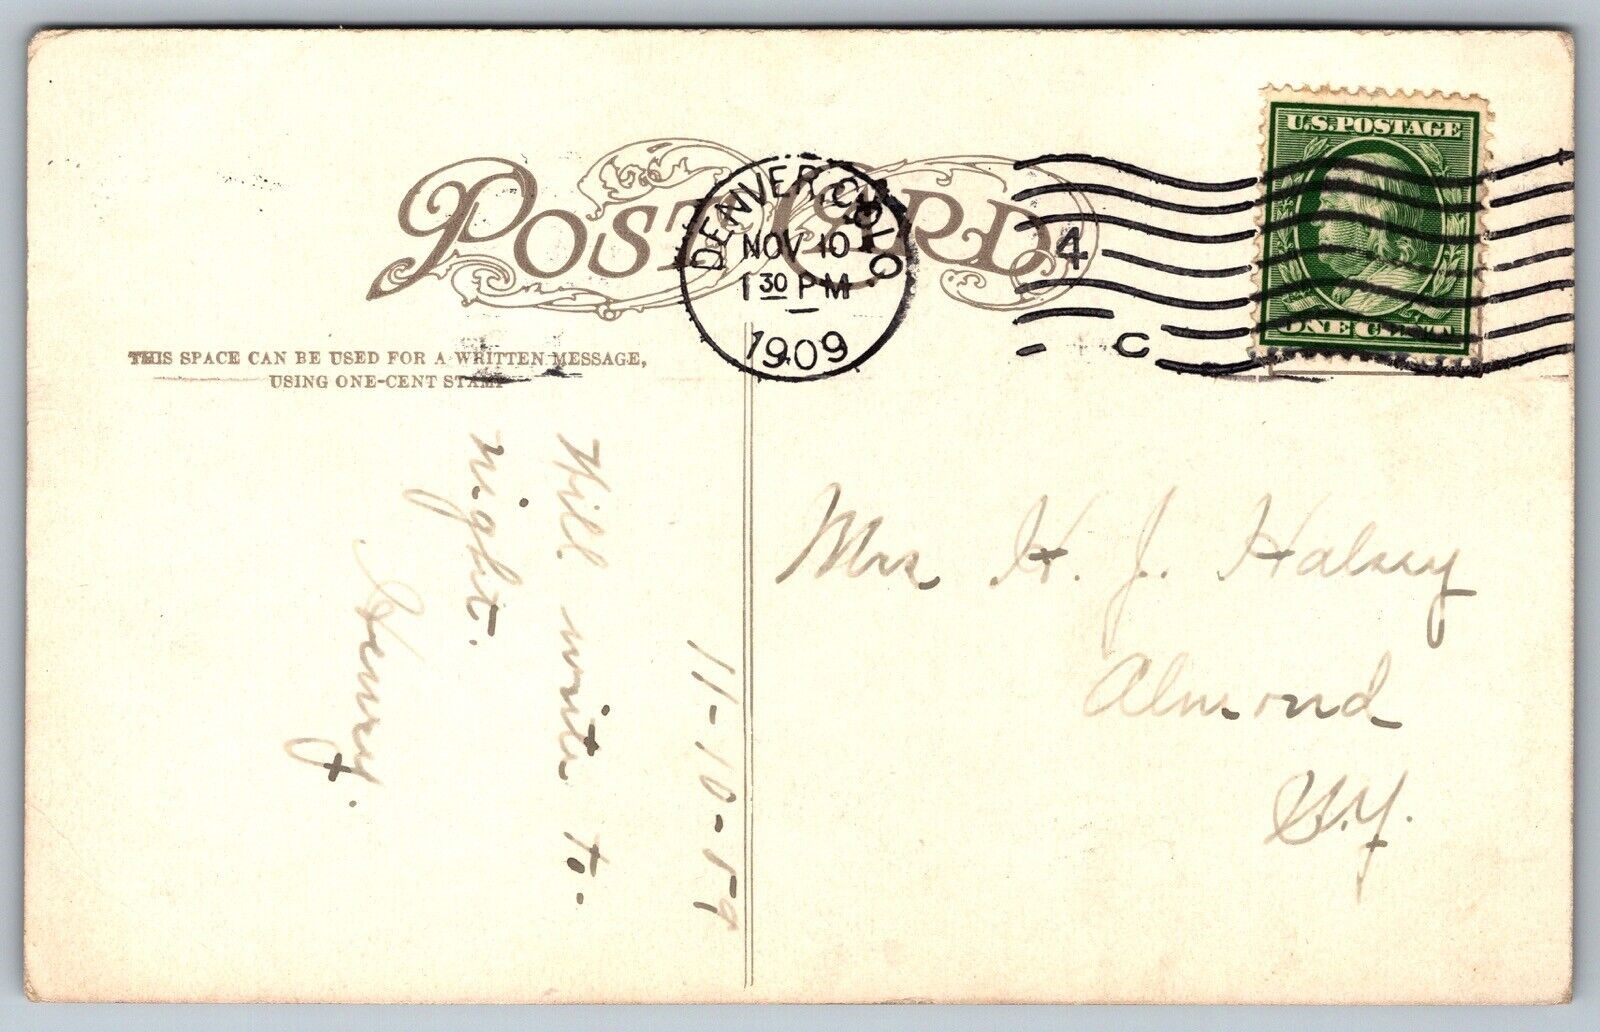 POST CARD
DENVER, COLO.
NOV 10
1 30 PM
1909
4
C
U.S. POSTAGE
ONE CENT
THIS SPACE CAN BE USED FOR A WRITTEN MESSAGE,
USING ONE-CENT STAMP
11-10-09
Will write to-
night.
Henry.
Mrs H. J. Halsey
Almond
N.Y.